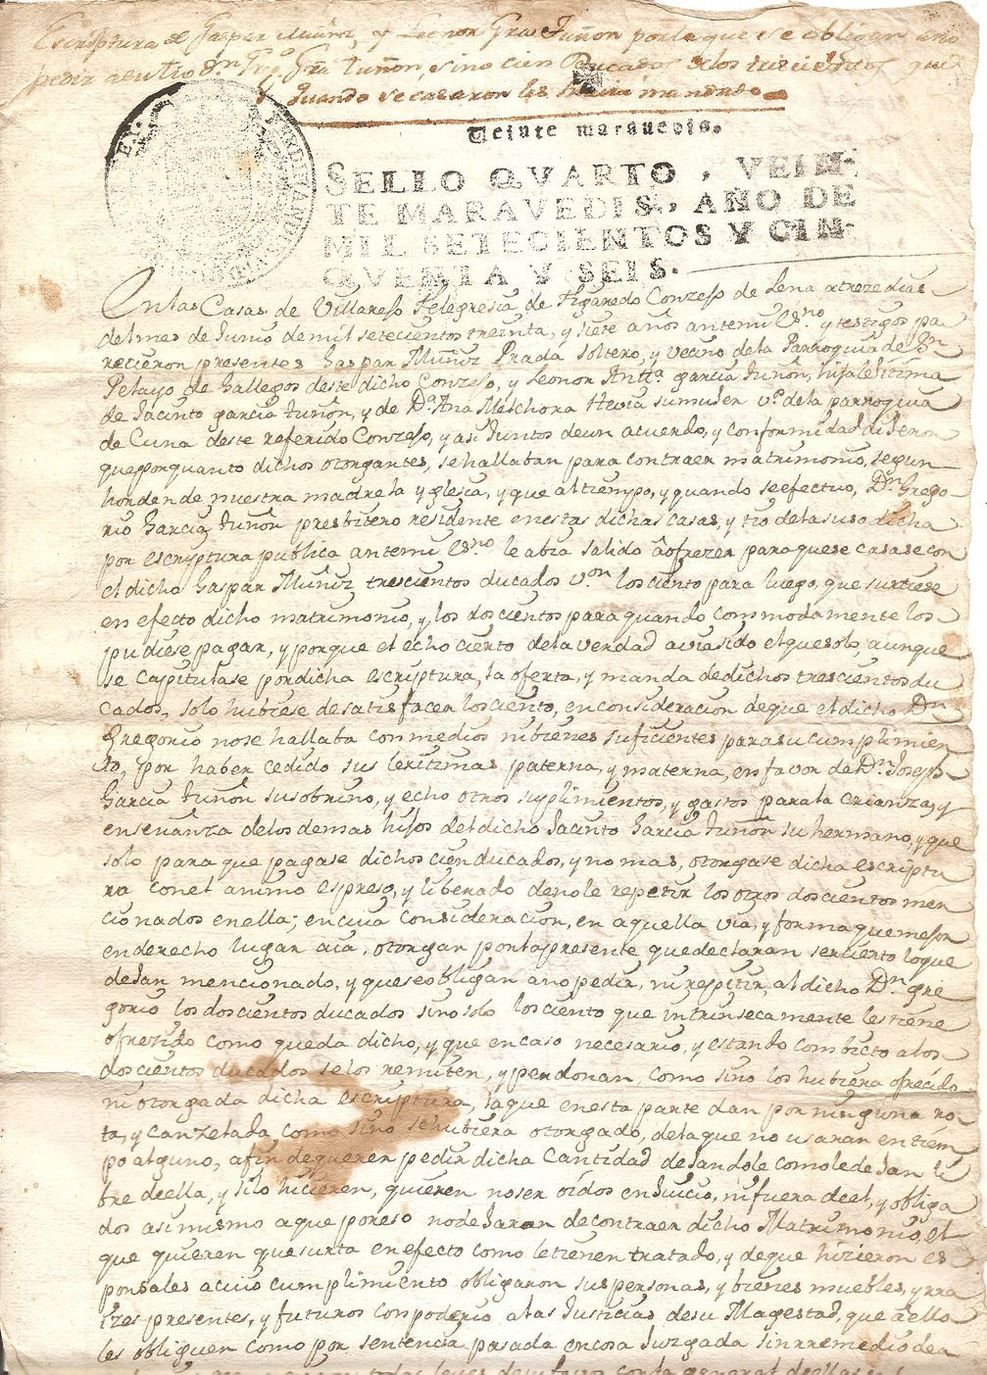 Escriptura de Gaspar Muñiz, y Leonor Gra Tuñon por la que se obligan a no
pedir a su tio Dn Greg Gra Tuñon, sino cien Ducados de los trescientos que
quando se casaron les havia mandado
Veinte marauedis.
SELLO QVARTO, VEIN-
TE MARAVEDIS, AÑO DE
MIL SETECIENTOS Y CIN-
QVENTA Y SEIS.
En las Casas de Villarejo Felegresia de Figaredo Conzejo de Lena a treze dias
del mes de Junio de mil setecientos treinta, y siete años antemi Esno y testigos pa-
recieron presentes Gaspar Muñiz Prada soltero, y vecino de la Parroquia de Sn
Pelayo de Gallegos deste dicho Conzejo, y Leonor Antta garcia tuñon, hija lexitima
de Jacinto garcia tuñon, y de Da Ana Melchora Hevia su muger vo de la parroquia
de Cuna deste referido Conzejo, y asi Juntos de un acuerdo, y conformidad dijeron
que por quanto dichos otorgantes, se hallaban para contraer matrimonio, segun
horden de nuestra madre la yglesia, y que al tiempo, y quando se efectuo, Dn Grego-
rio Garcia tuñon presbitero residente en estas dichas casas, y tio de la suso dicha
por escryptura publica antemi Esno le abia salido a ofrezer para que se casase con
el dicho Gaspar Muñiz trescientos ducados von los ciento para luego, que surtiese
en efecto dicho matrimonio, y los doscientos para quando commodamente los
pudiese pagar, y porque el echo cierto de la verdad avia sido el que solo, aunque
se capitulase por dicha escryptura, la oferta, y manda de dichos trescientos du
cados, solo hubiese de satisfacer los ciento, en consideracion de que el dicho Dn
Gregorio no se hallaba con medios ni bienes suficientes para su cumplimien
to, por haber cedido sus lexitimas paterna, y materna, en favor de Dn Joseph
Garcia tuñon su sobrino, y echo otros suplimientos, y gastos para la crianza, y
enseñanza de los demas hijos del dicho Jacinto Garcia tuñon su hermano, y que
solo para que pagase dichos cien ducados, y no mas, otorgase dicha escriptu
ra con el animo espreso, y liberado de no le repetir los otros doscientos men
cionados en ella; en cuia consideracion, en aquella via, y forma que mejor
en derecho lugar aia, otorgan por la presente que declaran ser cierto lo que
dejan mencionado, y que se obligan a no pedir, ni repitir, al dicho Dn gre
gorio los doscientos ducados sino solo los ciento que intrinsecamente les tiene
ofrezido como queda dicho, y que en caso necesario, y estando combicto a los
doscientos ducados se los remiten, y perdonan, como si no los hubiera ofrecido
ni otorgada dicha escriptura, la que en esta parte dan por ninguna ro-
ta, y canzelada como si no se hubiera otorgado, de la que no usaran en tiem
po alguno, a fin de querer pedir dicha cantidad dejandole como le dejan li
bre de ella, y si lo hicieren, quieren no ser oidos en Juicio, ni fuera de el, y obliga
dos asimismo a que por eso no dejaran de contraer dicho Matrimonio, el
que quieren que surta en efecto como le tienen tratado, y de que hizieron es
ponsales a cuio cumplimiento obligaron sus personas, y bienes muebles, y rra
izes presentes, y futuros con poderio a las Justicias de su Magestad, que a ello
les obliguen como por sentencia pasada en cosa Juzgada sin rremedio de a